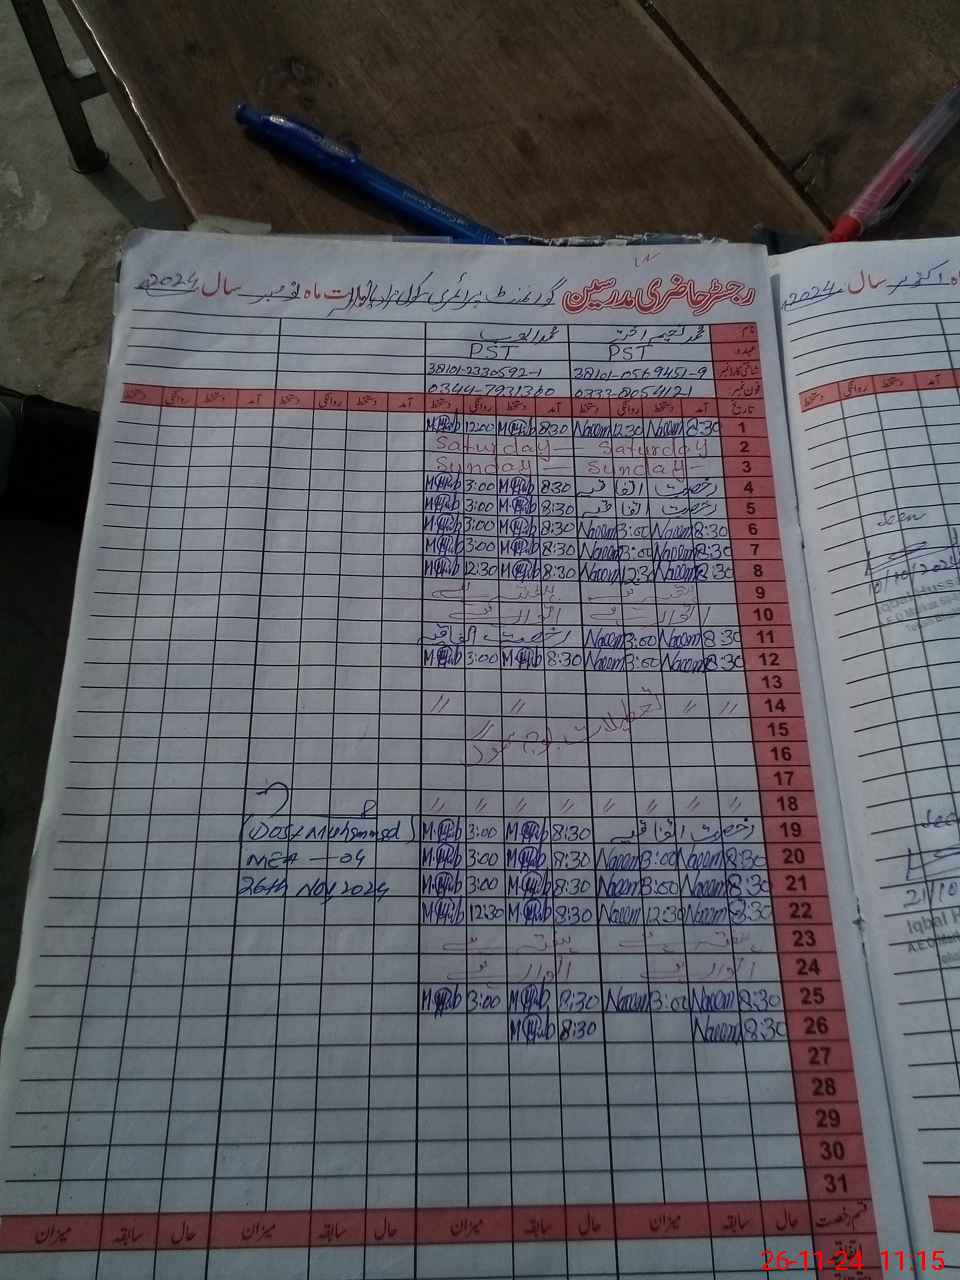 رجسٹر حاضری مدرسین گورنمنٹ پرائمری سکول بابت ماہ نومبر سال 2024
نام محمد نعیم اختر محمد
عہدہ PST PST
شناختی کارڈ نمبر 38101-0569451-9 38101-2330592-1
فون نمبر 0333-8054121 0344-7931360
تاریخ آمد دستخط روانگی دستخط آمد دستخط روانگی دستخط آمد دستخط روانگی دستخط آمد دستخط روانگی دستخط
1 8:30 Naeem 12:30 Naeem 8:30 12:00
2 Saturday — Saturday
3 Sunday — Sunday
4 رخصت اتفاقیہ 8:30 3:00
5 رخصت اتفاقیہ 8:30 3:00
6 8:30 Naeem 3:00 Naeem 8:30 3:00
7 8:30 Naeem 3:00 Naeem 8:30 3:00
8 8:30 Naeem 12:30 Naeem 8:30 12:30
9 ہفتہ ہے ہفتہ ہے
10 اتوار ہے اتوار ہے
11 8:30 Naeem 3:00 Naeem رخصت اتفاقیہ
12 8:30 Naeem 3:00 Naeem 8:30 3:00
13
14 〃 〃 تعطیلات 〃 〃
15 بوجہ 〃
16
17
18 〃 〃 〃 〃 〃 〃 〃 〃
19 رخصت اتفاقیہ 8:30 3:00
(Dost Muhammad)
20 8:30 Naeem 3:00 Naeem 8:30 3:00
MEA — 04
21 8:30 Naeem 3:00 Naeem 8:30 3:00
26th Nov 2024
22 8:30 Naeem 12:30 Naeem 8:30 12:30
23 ہفتہ ہے ہفتہ ہے
24 اتوار ہے اتوار ہے
25 8:30 Naeem 3:00 Naeem 8:30 3:00
26 8:30 Naeem 8:30
27
28
29
30
31
قسم رخصت حال سابقہ میزان حال سابقہ میزان حال سابقہ میزان حال سابقہ میزان
اتفاقیہ
اکتوبر سال 2024
روانگی دستخط
Seen
10/10/2024
21/10
Iqbal H
26-11-24 11:15